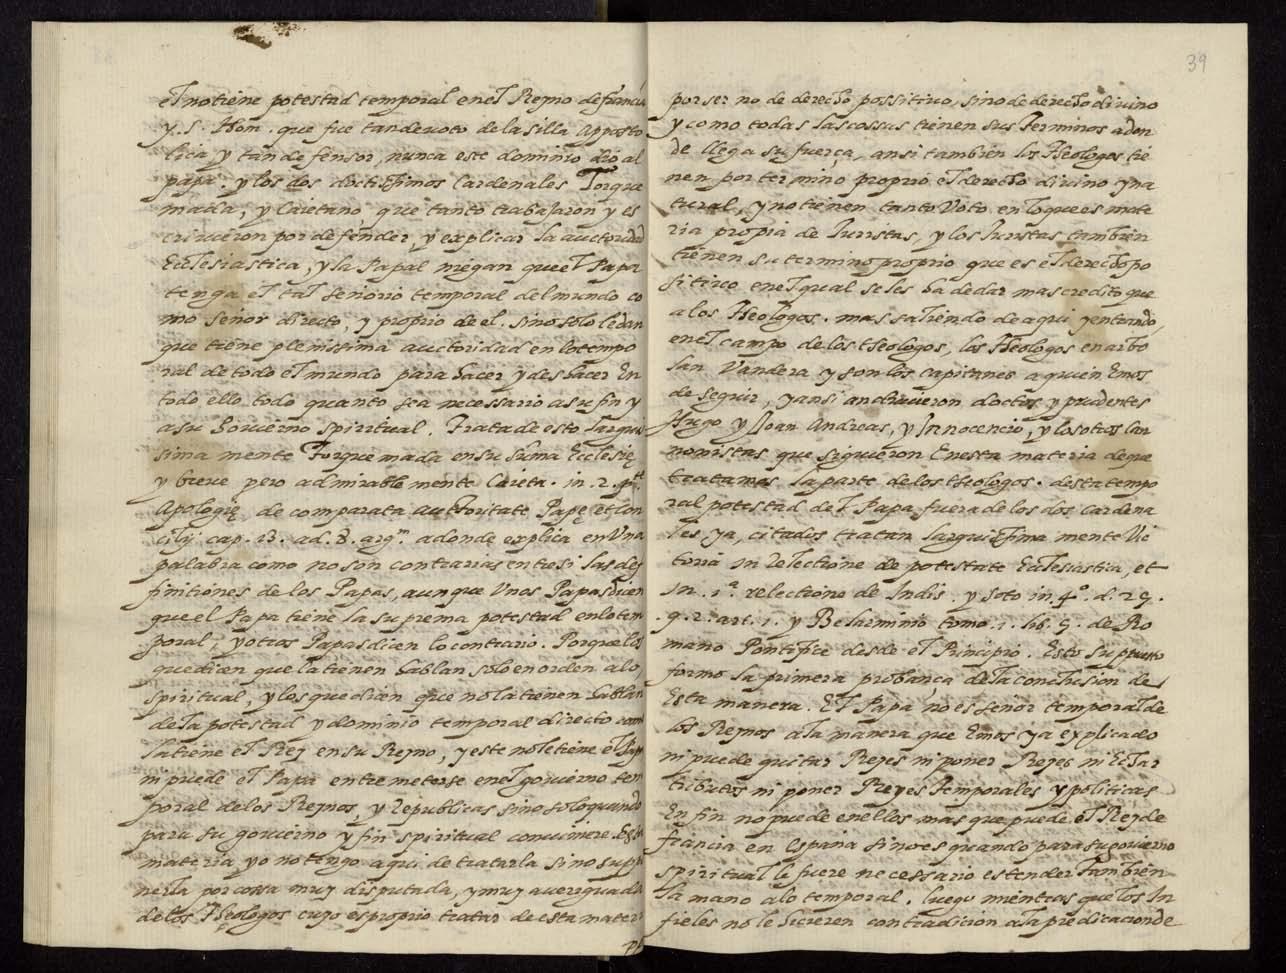 el no tiene potestad temporal en el Reyno de francia
y. S. Thom. que fue tan devoto de la silla Apposto
lica y tan defensor, nunca este dominio dió al
papa. y los dos doctissimos Cardenales Torque
mada, y Caietano que tanto trabajaron y es
crivieron por defender, y explicar la auctoridad
Ecclesiastica, y la Papal niegan que el Papa
tenga el tal señorio temporal del mundo co
mo señor directo, y proprio de el. sino solo le dan
que tiene plenissima auctoridad en lo tempo
ral de todo el mundo para hacer y deshacer En
todo ello todo quanto sea necessario a su fin y
a su Govierno spiritual. Trata de esto largui
sima mente Torquemada en su suma Ecclesię
y breve pero admirable mente Caieta. in. 2. prte
Apologię de comparata authoritate Papę et Con
cilij cap. 13. ad. 8. argm adonde explica en Una
palabra como no son contrarias entre si las de
finitiones de los Papas, aunque Unos Papas dicen
que el Papa tiene la suprema potestad en lo tem
poral, y otros Papas dicen lo contrario. Porque los
que dicen que la tienen hablan solo en orden a lo
spiritual, y los que dicen que no la tienen hablan
de la potestad y dominio temporal directo como
la tiene el Rey en su Reyno, y este no le tiene el Papa
ni puede el Papa entremeterse en el govierno tem
poral de los Reynos, y Republicas sino solo quando
para su govierno y fin spiritual conviniere. Esta
materia yo no tengo aqui de tratarla sino suppo
nerla por cossa muy disputada, y muy averiguada
de los Theologos cuyo es proprio tratar de esta materia
39
por ser no de derecho possitivo, sino de derecho divino
y como todas las cossas tienen sus Terminos adon
de llega su fuerça, ansi tambien los Theologos tie
nen por termino proprio el derecho divino y na
tural, y no tienen tanto Voto en lo que es mate
ria propia de Iuristas, y los Iuristas tambien
tienen su termino proprio que es el derecho po
sitivo en el qual se les ha de dar mas credito que
a los Theologos. mas saliendo de aqui y entrando,
en el campo de los theologos, los Theologos enarbo
lan Vandera y son los capitanes a quien Emos
de seguir, y ansi anduvieron doctos y prudentes
Hugo y Joan Andreas, y Innocencio, y los otros Can
nonistas que siguieron En esta materia de que
tratamos la parte de los theologos. desta tempo
ral potestad del Papa fuera de los dos Cardena
les ya, citados tratan larguissima mente Vic
toria in relectione de potestate Ecclesiastica, et
in. 1ª. relectione de Indis. y soto in. 4º. d. 29.
. q. 2. art. 1. y Belarminio tomo. 1. lib. 5. de Ro
mano Pontifice desde el Principio. Esto supuesto
formo la primera probança de la conclusion de
Esta manera. El Papa no es señor temporal de
los Reynos a la manera que Emos ya explicado
ni puede quitar Reyes ni poner Reyes ni Echar
tributos ni poner Preyes Temporales y politicas
En fin no puede en ellos mas que puede el Rey de
francia en españa sino es quando para su govierno
spiritual le fuere necessario estender Tambien
la mano a lo temporal. luego mientras que los In
fieles no le hicieren contradicion a la predicacion de